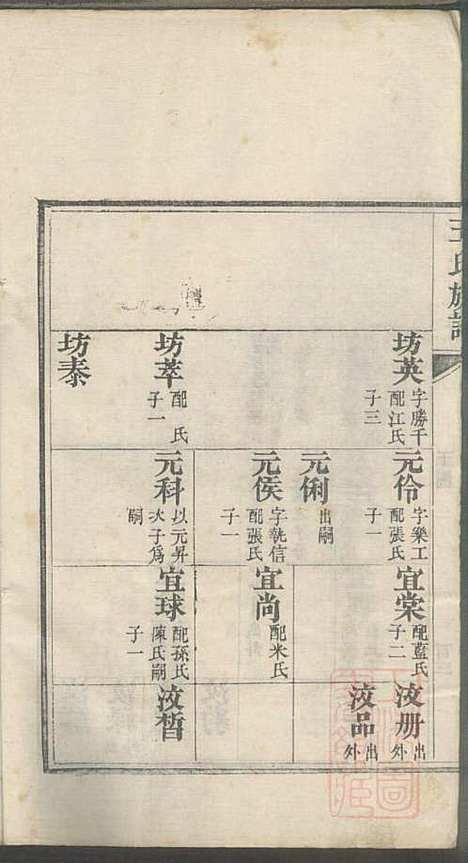 王氏族譜
坊英
字勝千
配江氏
子三
坊萃
配 氏
子一
坊泰
元伶
字樂工
配張氏
子一
元俐
出嗣
元侯
字執信
配張氏
子一
元科
以元昇
次子為
嗣
宜棠
配藍氏
子二
宜尚
配米氏
宜球
配孫氏
陳氏嗣
子一
汝册
出
外
汝品
出
外
汝皙